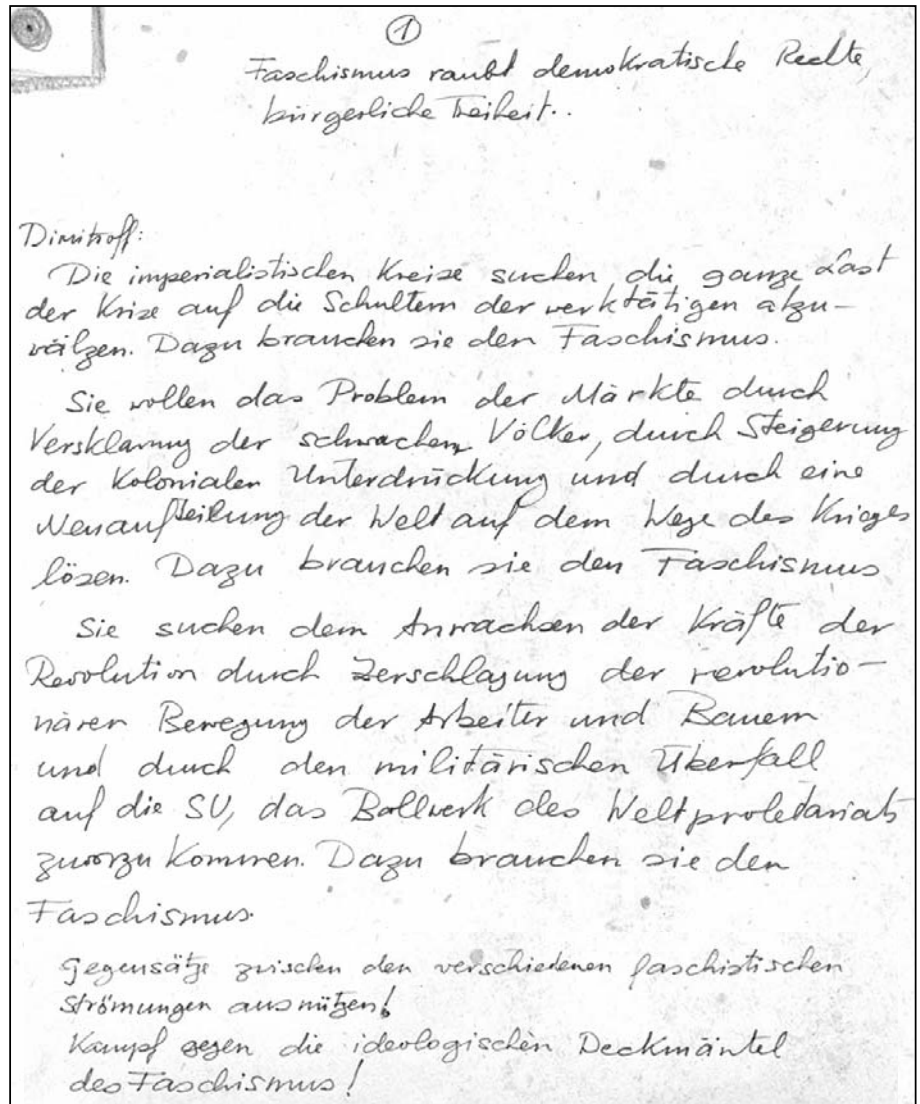 ①
Faschismus raubt demokratische Rechte,
bürgerliche Freiheit..
Dimitroff:
Die imperialistischen Kreise suchen die ganze Last
der Krise auf die Schultern der werktätigen abzu-
wälzen. Dazu brauchen sie den Faschismus.
Sie wollen das Problem der Märkte durch
Versklavung der schwachen Völker, durch Steigerung
der Kolonialen Unterdrückung und durch eine
Neuaufteilung der Welt auf dem Wege des Krieges
lösen. Dazu brauchen sie den Faschismus
Sie suchen dem Anwachsen der Kräfte der
Revolution durch Zerschlagung der revolutio-
nären Bewegung der Arbeiter und Bauern
und durch den militärischen Überfall
auf die SU, das Bollwerk des Weltproletariats
zuvorzukommen. Dazu brauchen sie den
Faschismus.
Gegensätze zwischen den verschiedenen faschistischen
Strömungen ausnützen!
Kampf gegen die ideologischen Deckmäntel
des Faschismus!